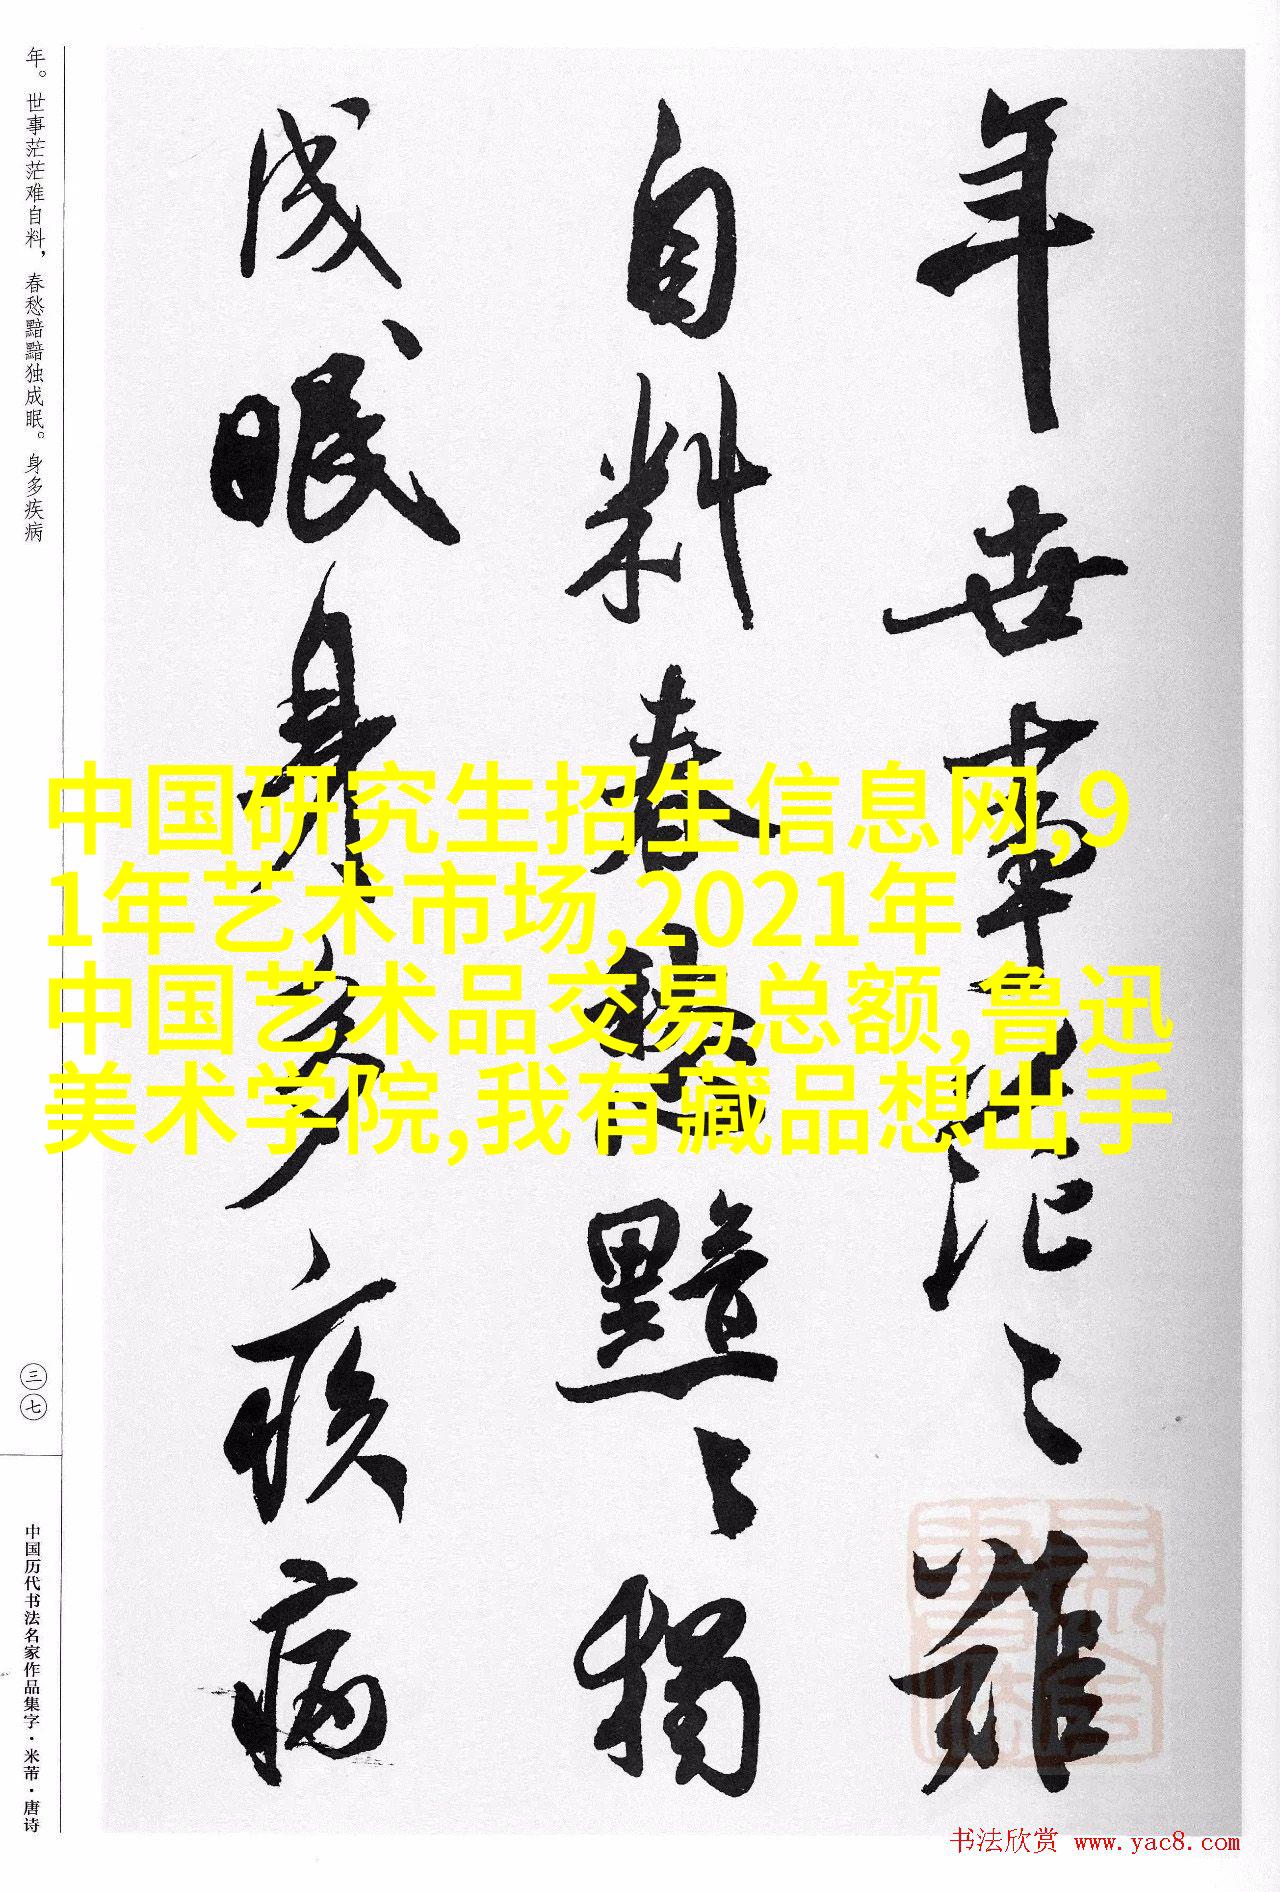 年世事茫〻難
自料春愁黯〻獨
成眠身多疾病
年。世事茫茫难自料，春愁黯黯独成眠。身多疾病
三七
中国历代书法名家作品集字·米芾·唐诗
中国研究生招生信息网,9
1年艺术市场,2021年
中国艺术品交易总额,鲁迅
美术学院,我有藏品想出手
书法欣赏 www.yac8.com